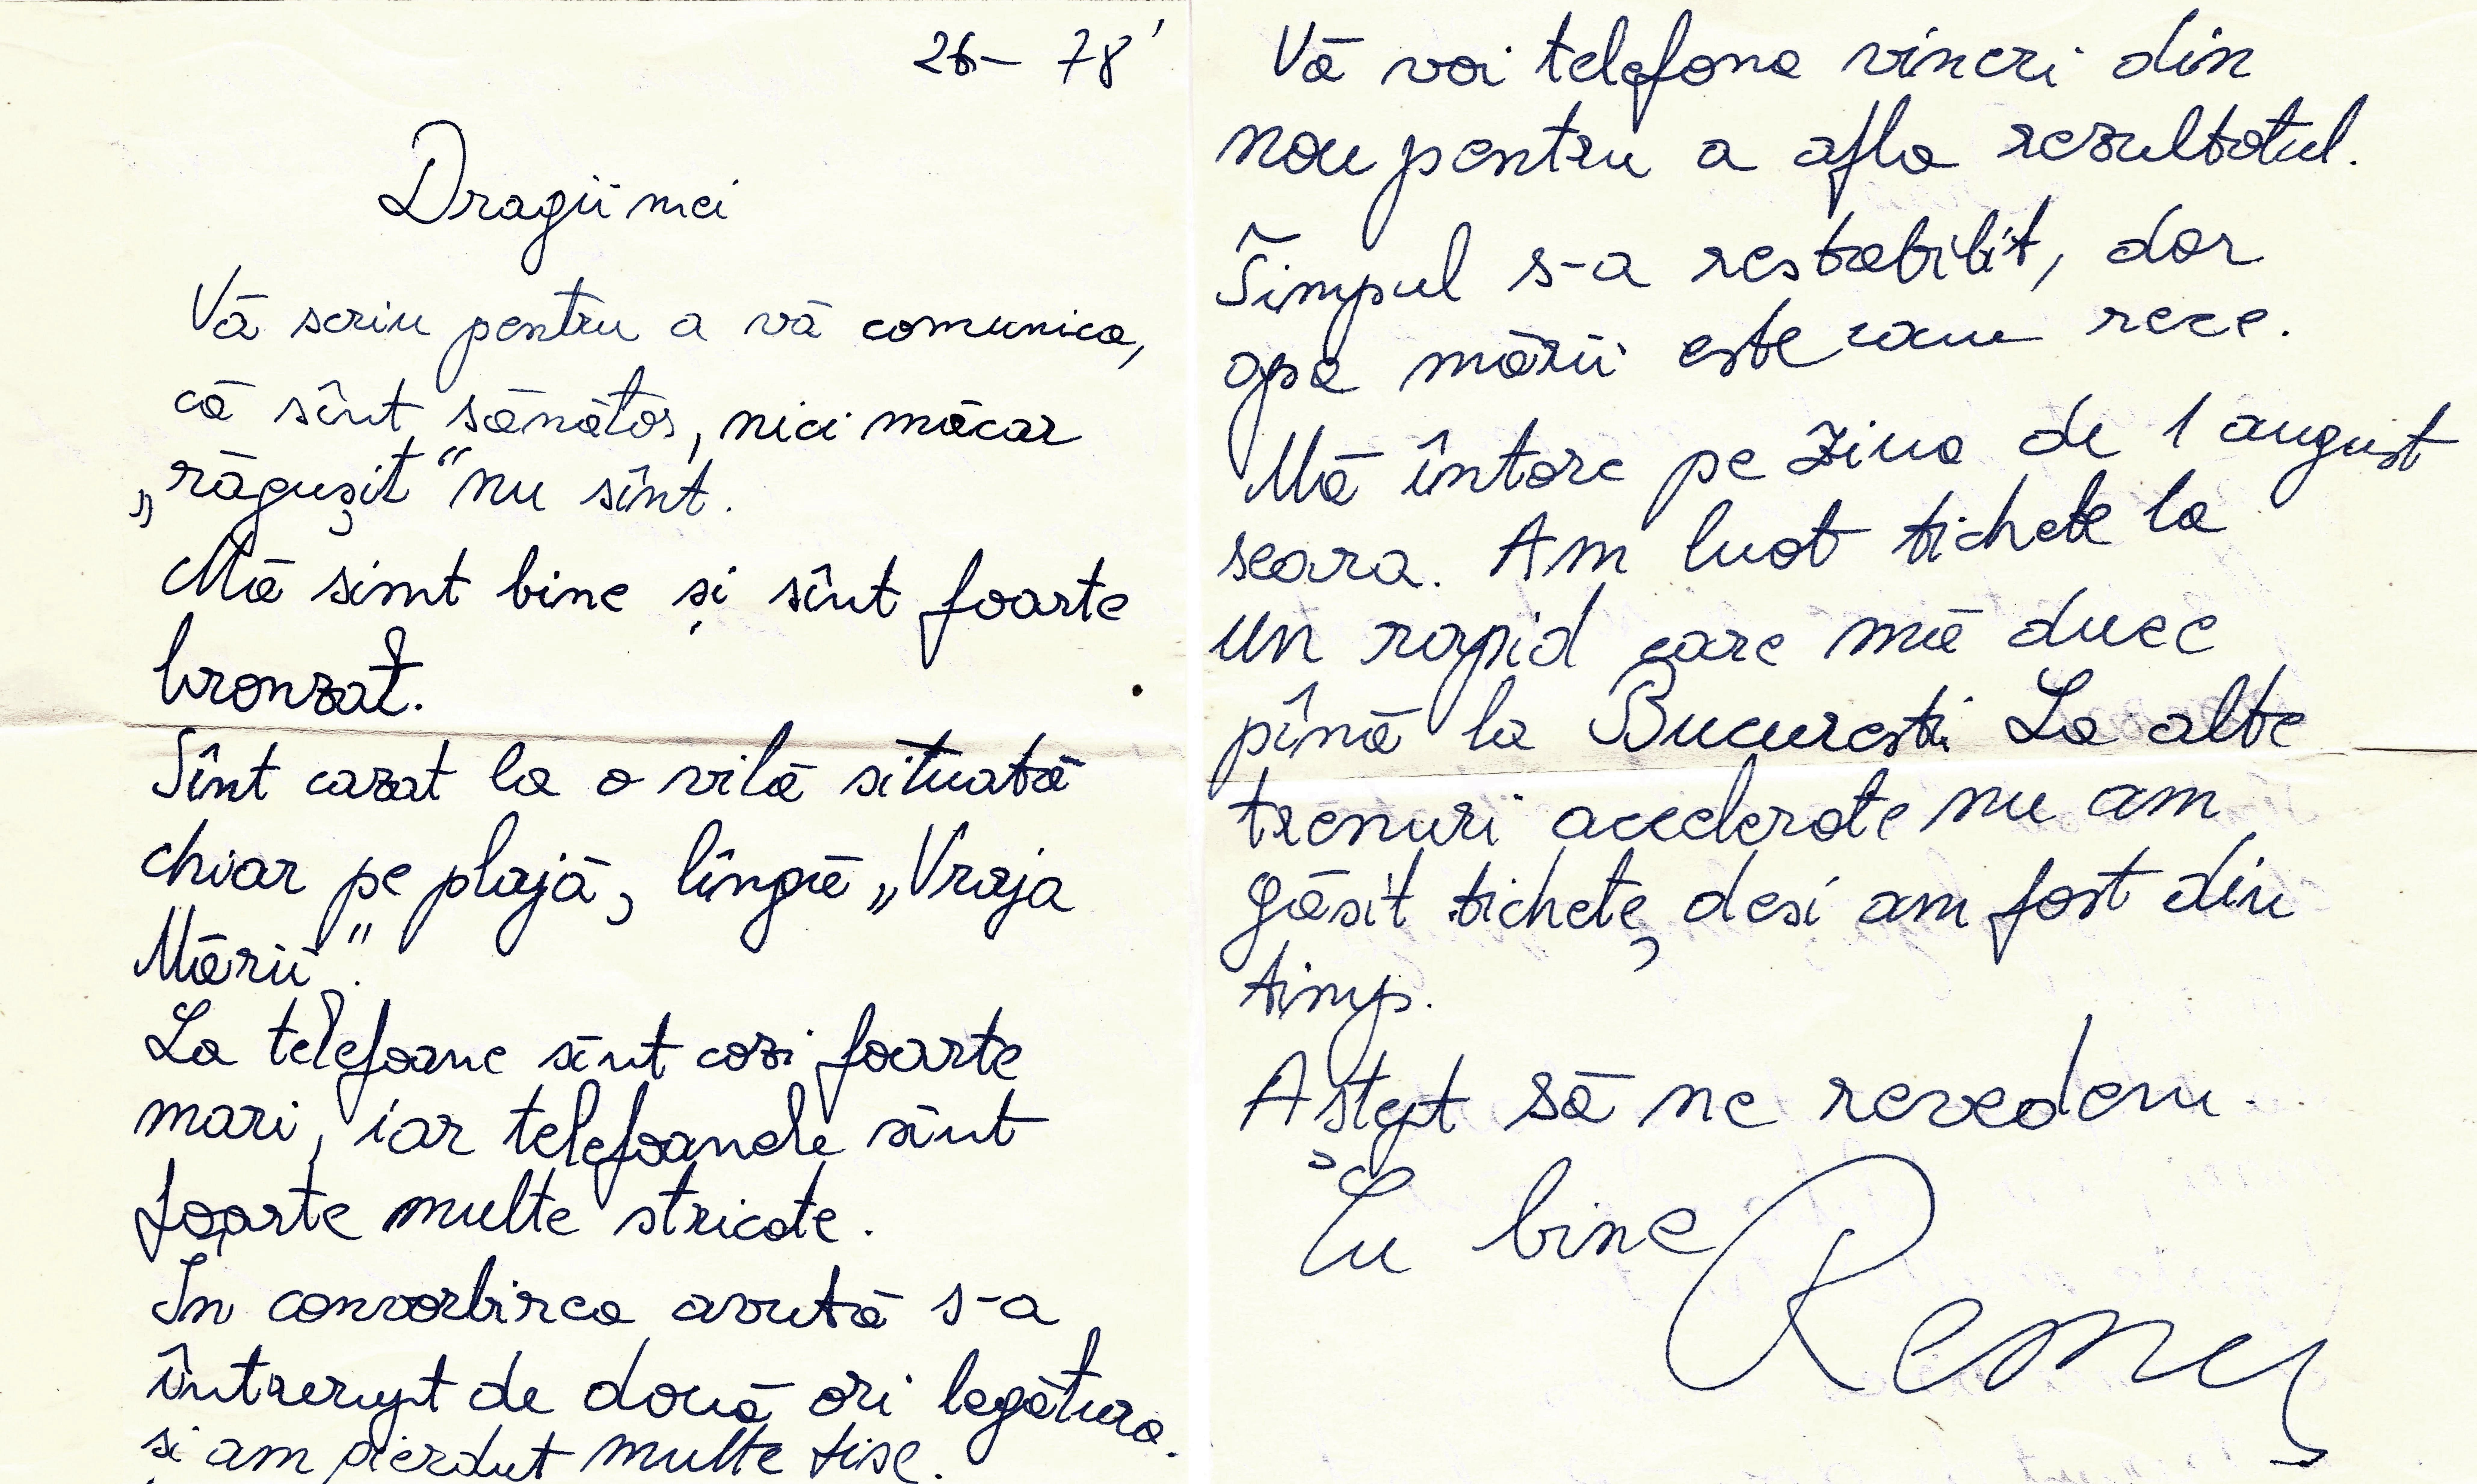 26- 78'
Dragii mei
Vă scriu pentru a vă comunica,
că sînt sănătos, nici măcar
„răgușit" nu sînt.
Mă simt bine și sînt foarte
bronzat.
Sînt cazat la o vilă situată
chiar pe plajă, lîngă „Vraja
Mării".
La telefoane sînt cozi foarte
mari, iar telefoanele sînt
foarte multe stricate.
In convorbirea avută s-a
întrerupt de două ori legătura.
și am pierdut multe fise.
Vă voi telefona vineri din
nou pentru a afla rezultatul.
Timpul s-a restabilit, dar
apa mării este cam rece.
Mă întorc pe ziua de 1 august
seara. Am luat tichete la
un rapid care mă duce
pînă la Bucuresti La alte
trenuri accelerate nu am
găsit tichete, desi am fost din
timp.
Astept să ne revedem.
Cu bine Remus